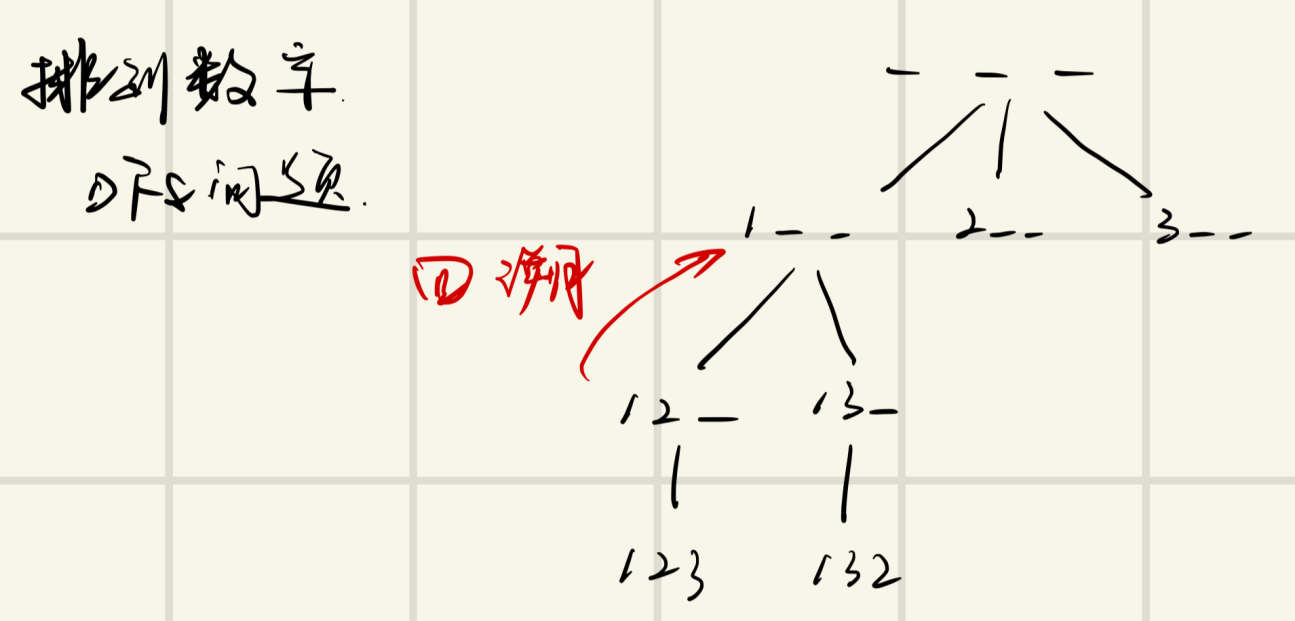 排列数字.
DFS问题.
_ _ _
1 _ _ 2 _ _ 3 _ _
回溯
1 2 _ 1 3 _
1 2 3 1 3 2